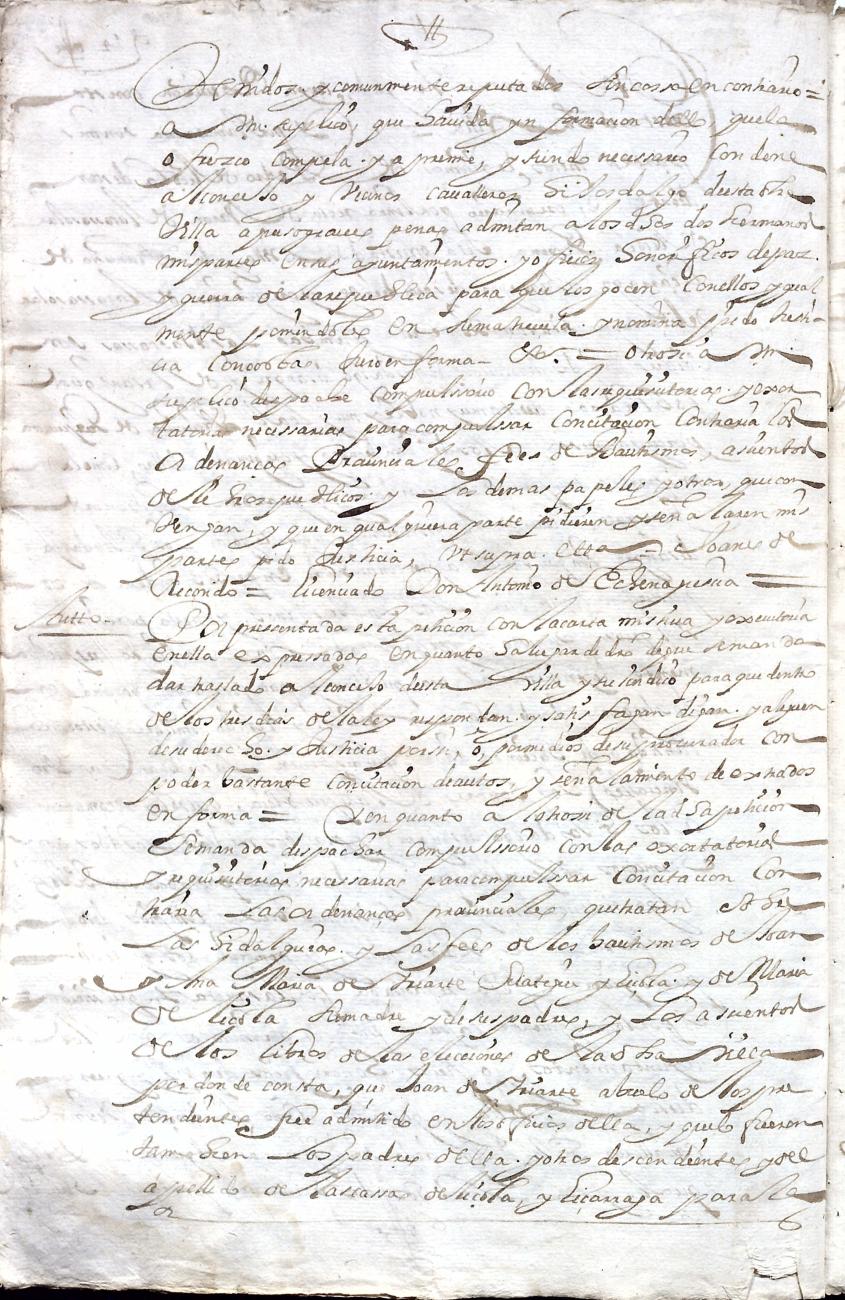 tenidos y comunmente reputados sin cossa en contrario =
a Vm. suplico, que havida ynformazion dello, que la
ofrezco compela y apremie, y siendo necessario condene
al concejo y vecinos cavalleros hijosdalgo de esta dha
Villa a que so graves penas admitan a los dhos dos hermanos
mis partes en sus ayuntamientos y oficios honorificos de paz
y guerra de la republica para que los gocen con ellos ygual
mente poniendoles en su matricula y nomina pido justi
cia con costas juro en forma &c. = Otrosi a Vm.
suplico despache compulsorio con las requisitorias y exor
tatorias necessarias para compulsar con citacion contraria las
ordenanças Provinciales, fees de Bautismos, asientos
de libros publicos y los demas papeles y otros, que con
vengan, y que en qualquiera parte pidieren y señalaren mis
partes pido justicia, ut supra etta = Joanes de
Recondo = licenciado Don Antonio de Echenapesua =
Autto
Por pressentada esta peticion con la carta missiva y executoria
en ella expressadas en quanto a lugar de dro de que se manda
dar traslado al concejo de esta Villa y su sindico para que dentro
de los tres dias de la ley respondan y satisfagan digan y aleguen
de su derecho y justicia por si, o por medio de su procurador con
poder bastante con citacion de autos, y señalamiento de extrados
en forma = Y en quanto a lo otrosi de la dha peticion
se manda despachar compulssorio con las exortatorias
y requisitorias necessarias para compulssar con citacion con
traria las ordenanças provinciales, que tratan sobre
las hidalguias y las fees de los bautismos de Joan
y Ana Maria de Yriarte y de Maria
de liçola su madre y de sus padres, y los asientos
de los libros de las elecciones de la dha Villa
por donde consta, que Joan de Yriarte abuelo de los pre
tendientes fue admitido en los oficios della, y que lo fueron
tambien los padres della y otros descendientes y del
apellido de las cassas de liçola, y Liçarraga para lo